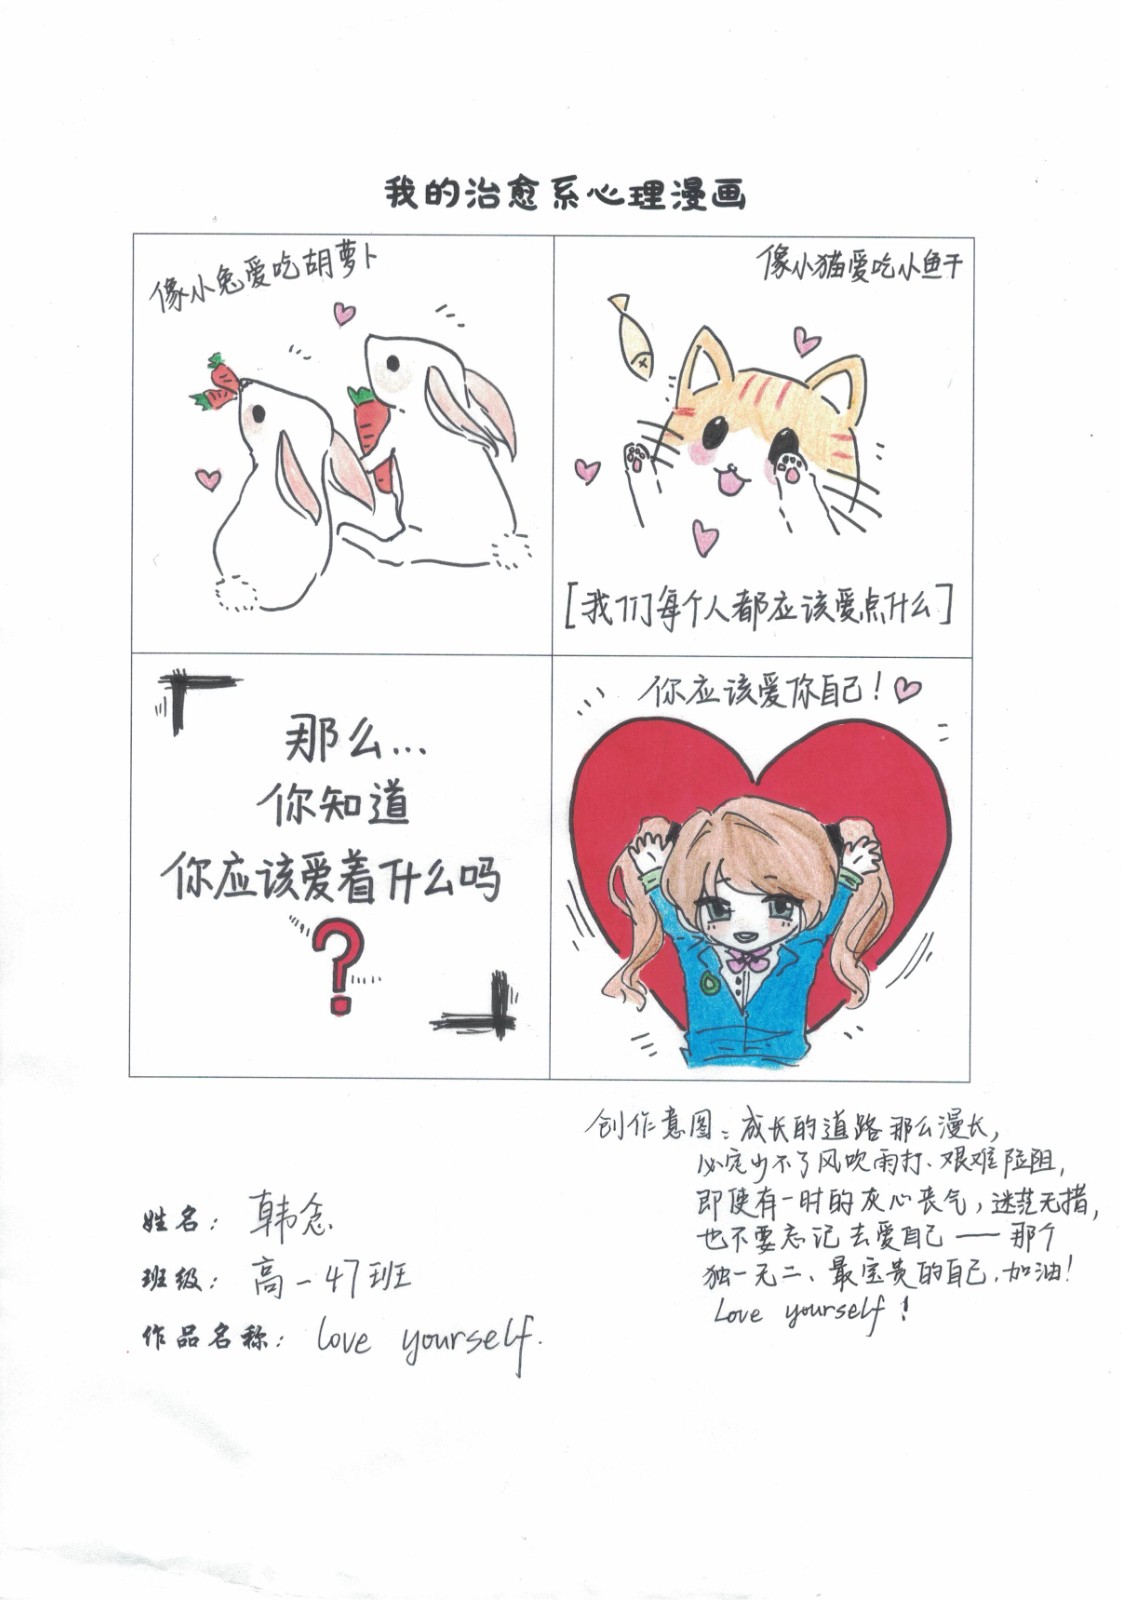 我的治愈系心理漫画
像小兔爱吃胡萝卜
像小猫爱吃小鱼干
[我们每个人都应该爱点什么]
那么...
你知道
你应该爱着什么吗
?
你应该爱你自己!
创作意图:成长的道路那么漫长,
必定少不了风吹雨打、艰难险阻,
即使有一时的灰心丧气,迷茫无措,
也不要忘记去爱自己——那个
独一无二、最宝贵的自己.加油!
Love yourself!
姓名: 韩念
班级: 高一47班
作品名称: love yourself.